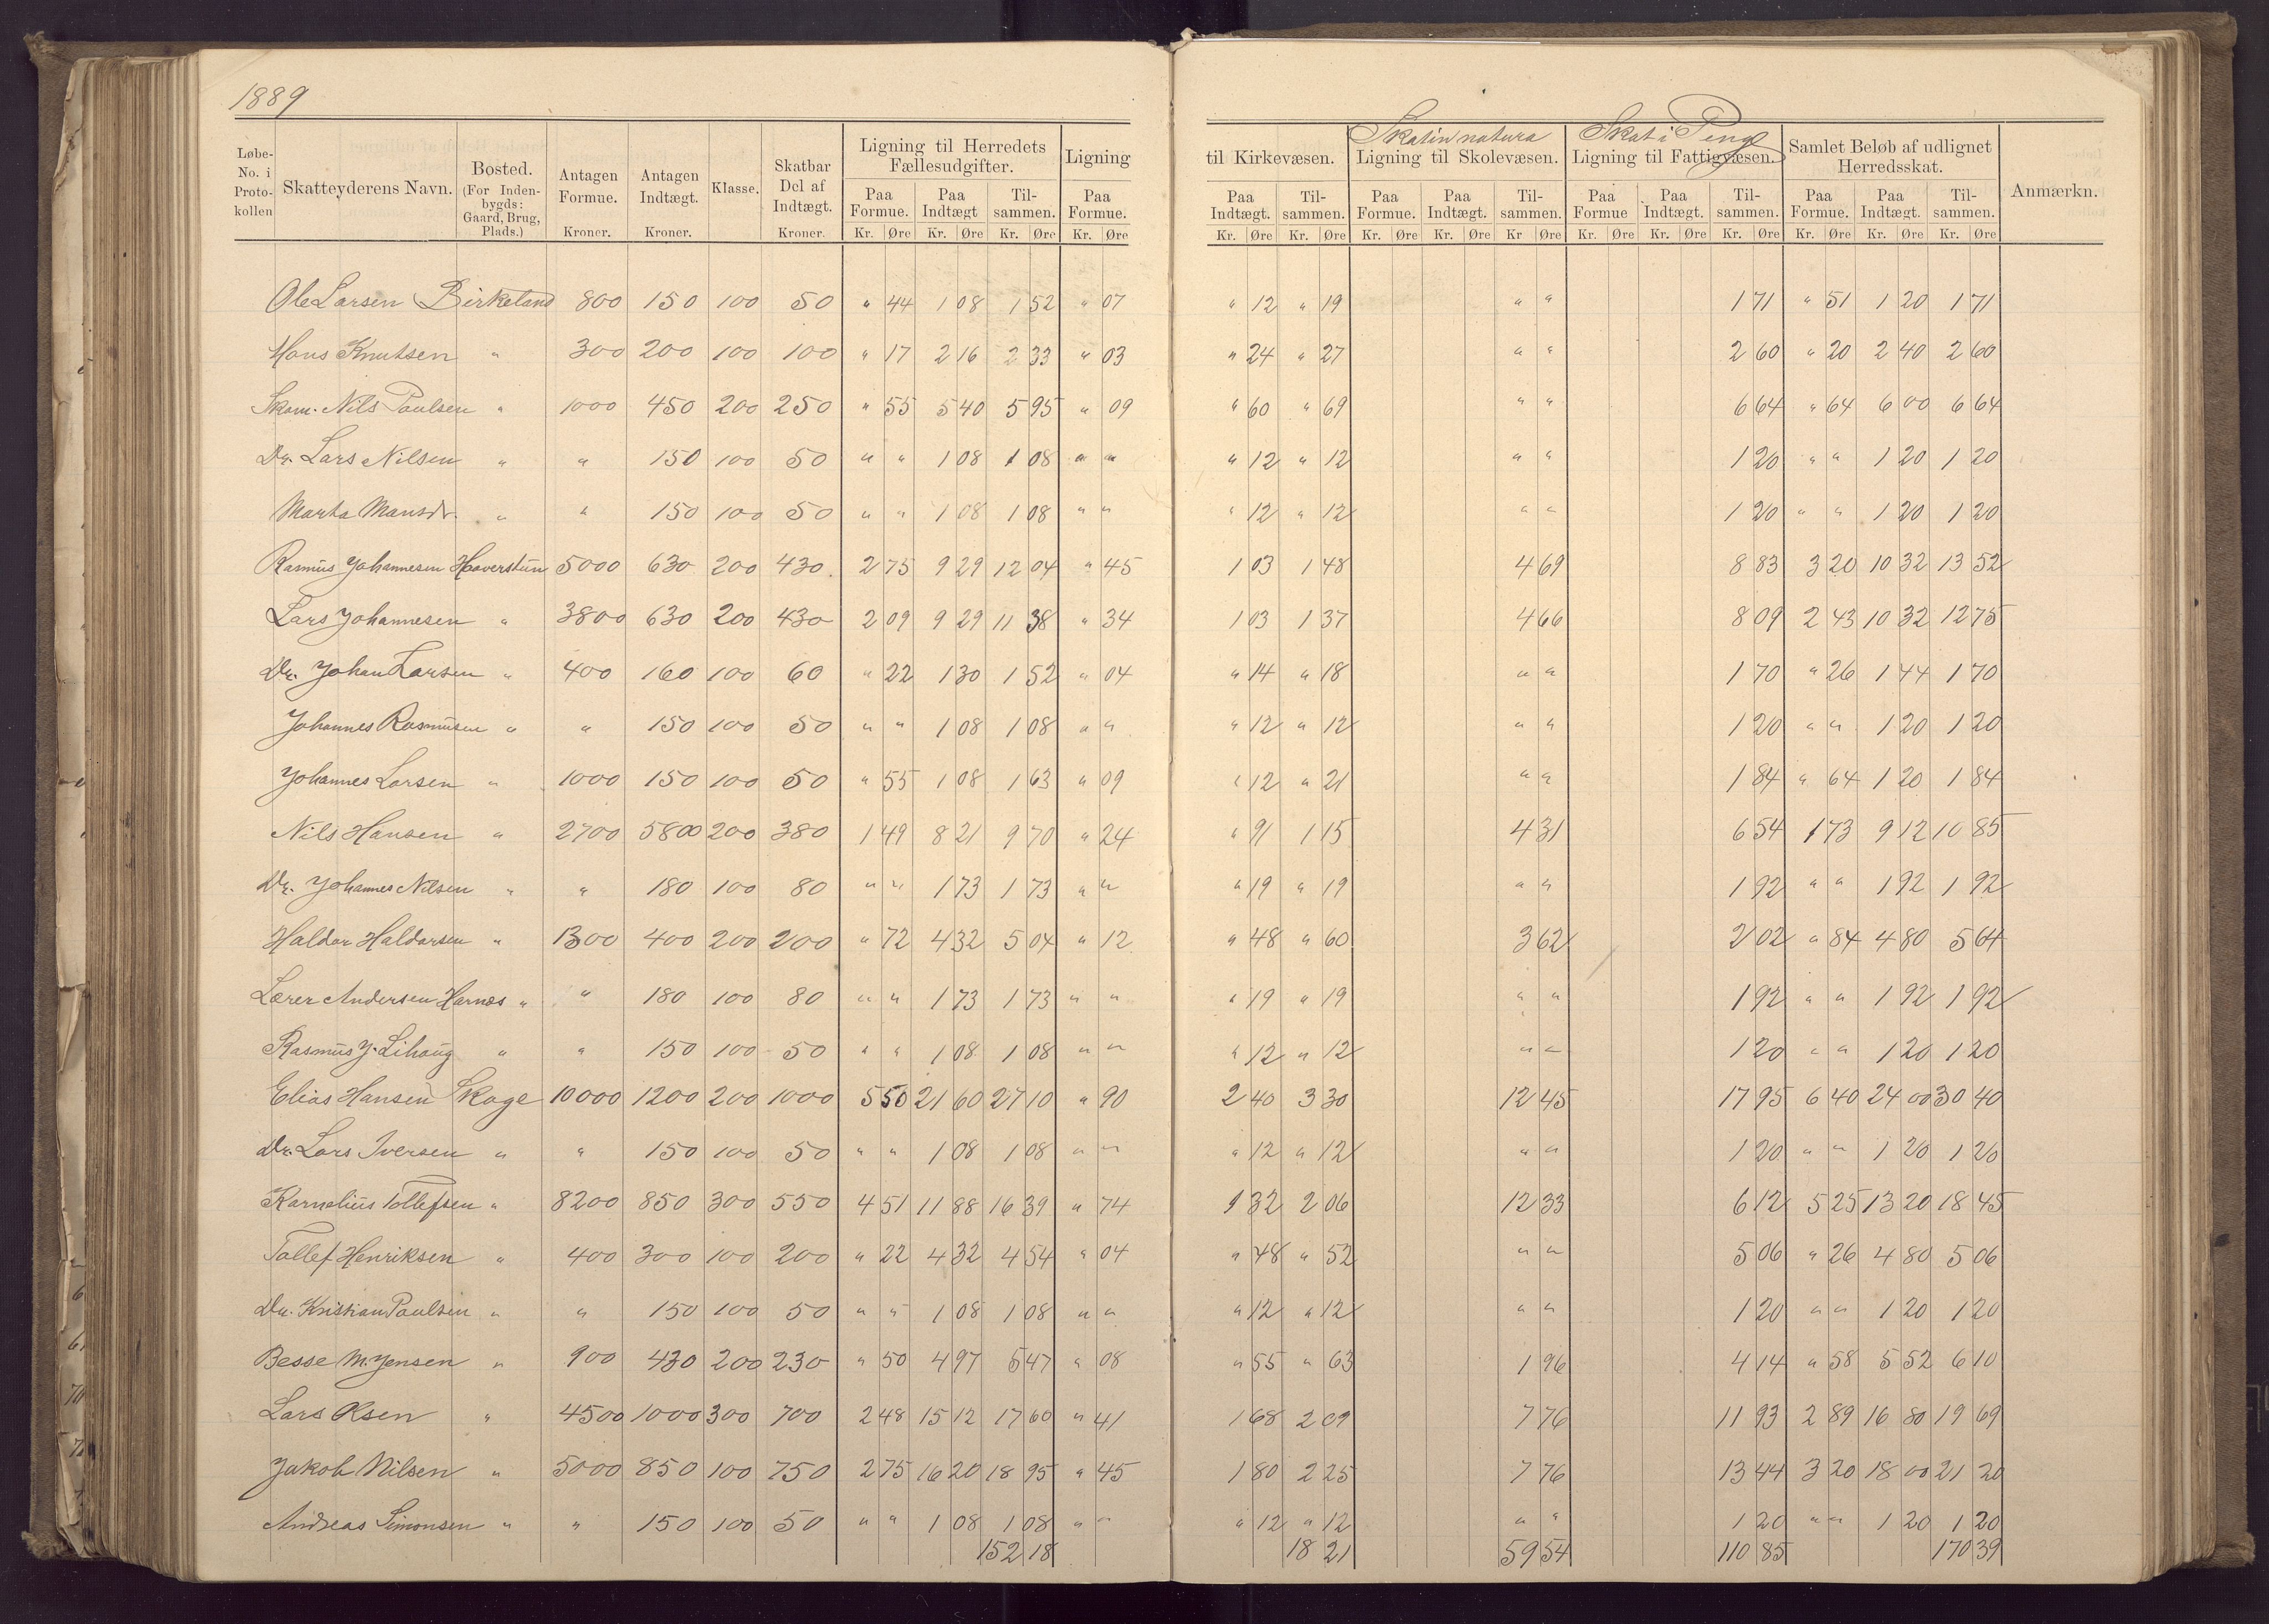 1889
Løbe-No. i Protokollen | Skatteyderens Navn. | Bosted. (For Indenbygds: Gaard, Brug, Plads.) | Antagen Formue. Kroner. | Antagen Indtægt. Kroner. | Klasse. | Skatbar Del af Indtægt. Kroner. | Ligning til Herredets Fællesudgifter. Paa Formue. Kr. Øre | Paa Indtægt Kr. Øre | Tilsammen. Kr. Øre | Ligning Paa Formue. Kr. Øre | til Kirkevæsen. Paa Indtægt. Kr. Øre | Tilsammen. Kr. Øre | Skat in natura Ligning til Skolevæsen. Paa Formue. Kr. Øre | Paa Indtægt. Kr. Øre | Tilsammen. Kr Øre | Skat i Penge Ligning til Fattigvæsen. Paa Formue Kr. Øre | Paa Indtægt. Kr. Øre | Tilsammen. Kr. Øre | Samlet Beløb af udlignet Herredsskat. Paa Formue. Kr. Øre | Paa Indtægt. Kr. Øre | Tilsammen. Kr. Øre | Anmærkn.
Ole Larsen Birkeland 800 150 100 50 " 44 1 08 1 52 " 07 " 12 " 19 " " 1 71 " 51 1 20 1 71
Hans Knutsen " 300 200 100 100 " 17 2 16 2 33 " 03 " 24 " 27 " " 2 60 " 20 2 40 2 60
Skom. Nils Paulsen " 1000 450 200 250 " 55 5 40 5 95 " 09 " 60 " 69 " " 6 64 " 64 6 00 6 64
Dr. Lars Nilsen " " 150 100 50 " " 1 08 1 08 " " " 12 " 12 " " 1 20 " " 1 20 1 20
Marta Mansdr. " " 150 100 50 " " 1 08 1 08 " " " 12 " 12 " " 1 20 " " 1 20 1 20
Rasmus Johannesen Haaverstun 5000 630 200 430 2 75 9 29 12 04 " 45 1 03 1 48 4 69 8 83 3 20 10 32 13 52
Lars Johannesen " 3800 630 200 430 2 09 9 29 11 38 " 34 1 03 1 37 4 66 8 09 2 43 10 32 12 75
Dr. Johan Larsen " 400 160 100 60 " 22 1 30 1 52 " 04 " 14 " 18 " " 1 70 " 26 1 44 1 70
Johannes Rasmusen " " 150 100 50 " " 1 08 1 08 " " " 12 " 12 " " 1 20 " " 1 20 1 20
Johannes Larsen " 1000 150 100 50 " 55 1 08 1 63 " 09 " 12 " 21 " " 1 84 " 64 1 20 1 84
Nils Hansen " 2700 5800 200 380 1 49 8 21 9 70 " 24 " 91 1 15 4 31 6 54 1 73 9 12 10 85
Dr. Johannes Nilsen " " 180 100 80 " " 1 73 1 73 " " " 19 " 19 " " 1 92 " " 1 92 1 92
Haldor Haldorsen " 1300 400 200 200 " 72 4 32 5 04 " 12 " 48 " 60 3 62 2 02 " 84 4 80 5 64
Lærer Andersen Harnes " " 180 100 80 " " 1 73 1 73 " " " 19 " 19 " " 1 92 " " 1 92 1 92
Rasmus J. Lihaug " " 150 100 50 " " 1 08 1 08 " " " 12 " 12 " " 1 20 " " 1 20 1 20
Elias Hansen Skage 10000 1200 200 1000 5 50 21 60 27 10 " 90 2 40 3 30 12 45 17 95 6 40 24 00 30 40
Dr. Lars Iversen " " 150 100 50 " " 1 08 1 08 " " " 12 " 12 " " 1 20 " " 1 20 1 20
Kornelius Tollefsen " 8200 850 300 550 4 51 11 88 16 39 " 74 1 32 2 06 12 33 6 12 5 25 13 20 18 45
Tollef Henriksen " 400 300 100 200 " 22 4 32 4 54 " 04 " 48 " 52 " " 5 06 " 26 4 80 5 06
Dr. Kristian Paulsen " " 150 100 50 " " 1 08 1 08 " " " 12 " 12 " " 1 20 " " 1 20 1 20
Besse M. Jensen " 900 430 200 230 " 50 4 97 5 47 " 08 " 55 " 63 1 96 4 14 " 58 5 52 6 10
Lars Olsen " 4500 1000 300 700 2 48 15 12 17 60 " 41 1 68 2 09 7 76 11 93 2 89 16 80 19 69
Jakob Nilsen " 5000 850 100 750 2 75 16 20 18 95 " 45 1 80 2 25 7 76 13 44 3 20 18 00 21 20
Andreas Simonsen " " 150 100 50 " " 1 08 1 08 " " " 12 " 12 " " 1 20 " " 1 20 1 20
152 18 18 21 59 54 110 85 170 39